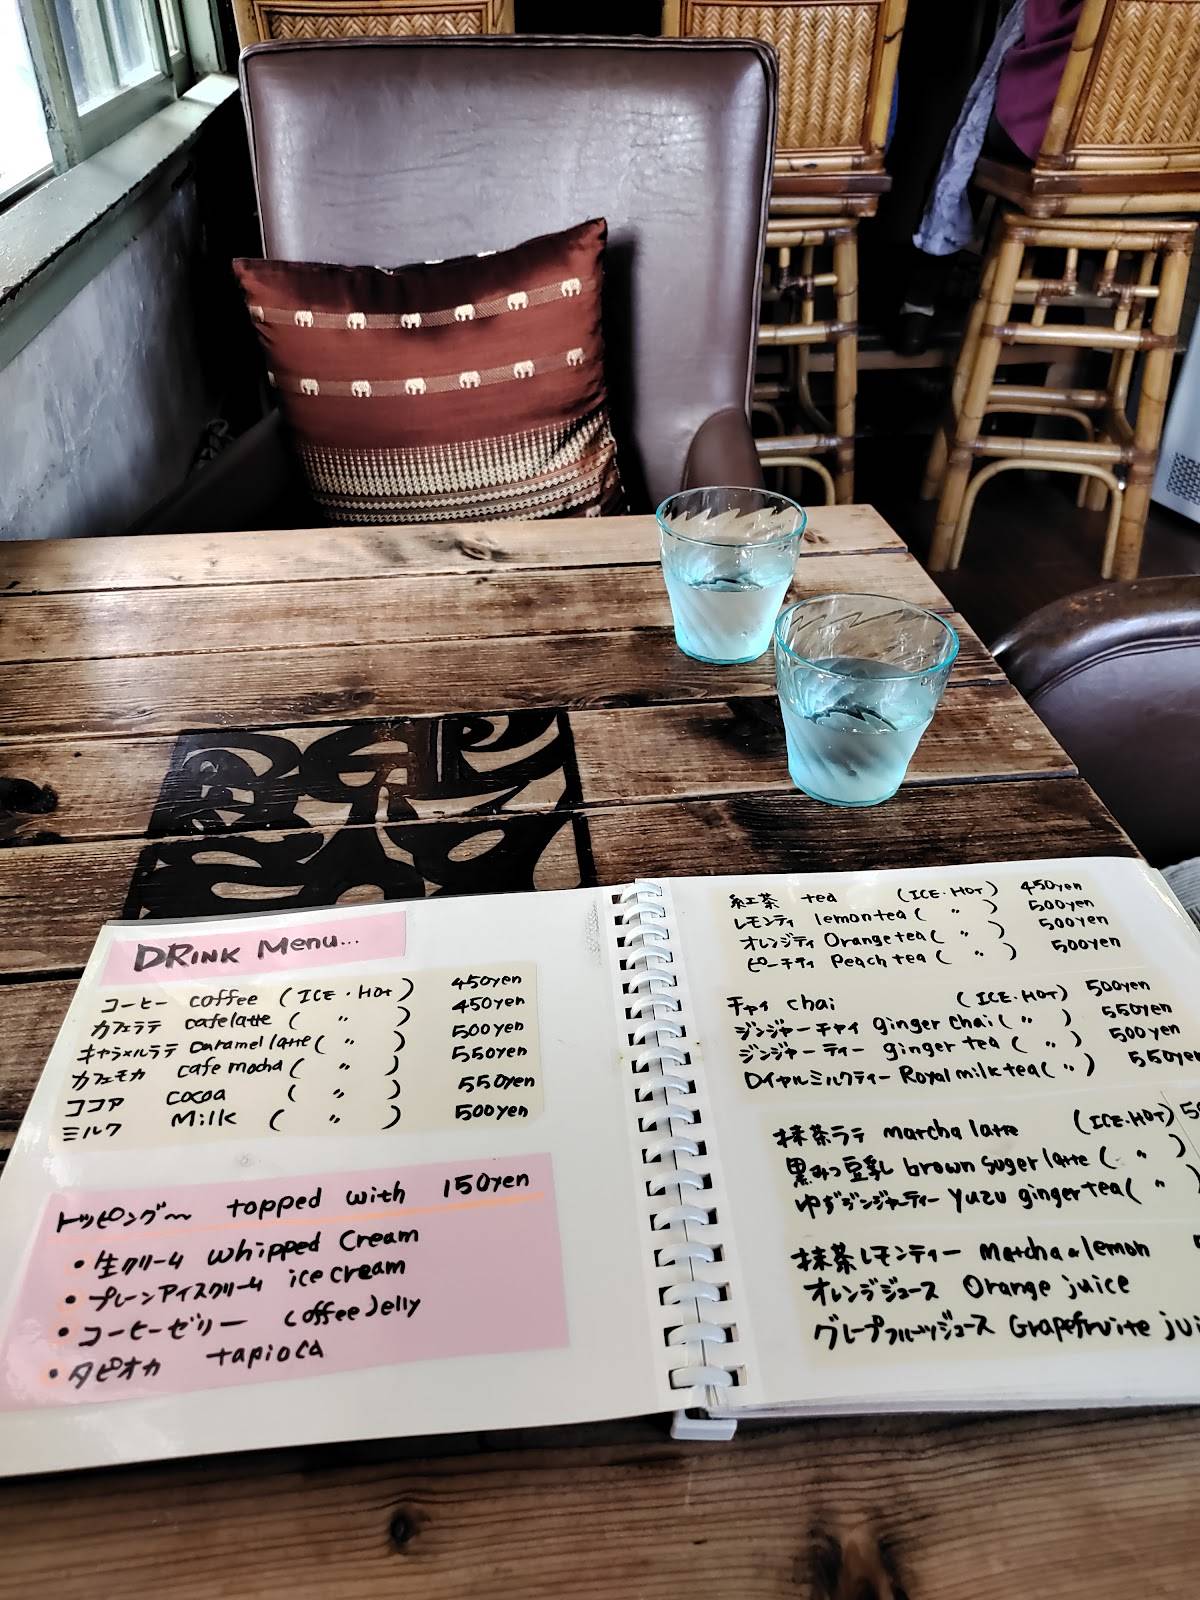 DRINK Menu...
コーヒー coffee (ICE・HOT) 450yen
カフェラテ cafelatte ( 〃 ) 450yen
キャラメルラテ caramel latte( 〃 ) 500yen
カフェモカ cafe mocha( 〃 ) 550yen
ココア cocoa ( 〃 ) 550yen
ミルク Milk ( 〃 ) 500yen
トッピング〜 topped with 150yen
・生クリーム whipped Cream
・プレーンアイスクリーム ice cream
・コーヒーゼリー coffee Jelly
・タピオカ tapioca
紅茶 tea (ICE・HOT) 450yen
レモンティ lemon tea ( 〃 ) 500yen
オレンジティ Orange tea ( 〃 ) 500yen
ピーチティ Peach tea ( 〃 ) 500yen
チャイ chai (ICE・HOT) 500yen
ジンジャーチャイ ginger chai ( 〃 ) 550yen
ジンジャーティー ginger tea ( 〃 ) 500yen
ロイヤルミルクティー Royal milk tea ( 〃 ) 550yen
抹茶ラテ matcha latte (ICE・HOT)
黒みつ豆乳 brown suger latte ( 〃 )
ゆずジンジャーティー Yuzu ginger tea ( 〃 )
抹茶レモンティー Matcha & lemon
オレンジジュース Orange juice
グレープフルーツジュース Grapefruite jui